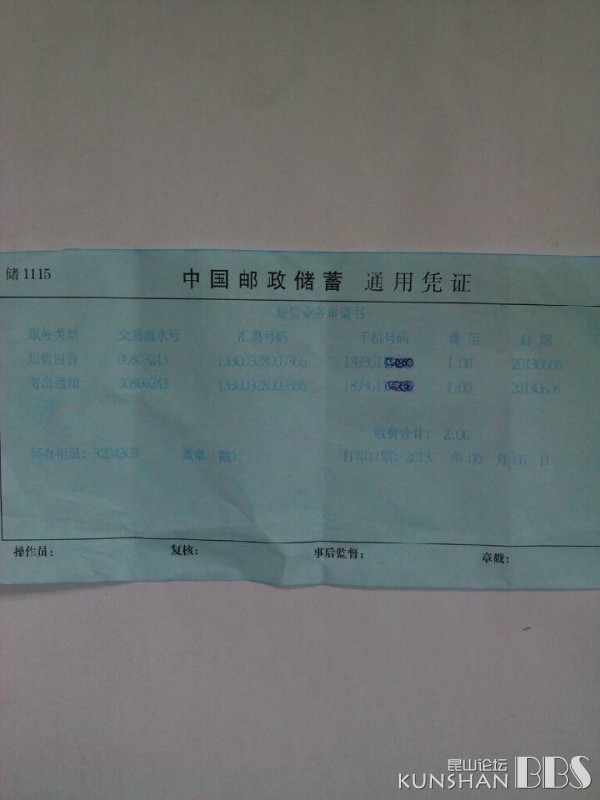 储1115
中国邮政储蓄 通用凭证
短信业务申请书
服务类型 交易流水号 汇票号码 手机号码 费用 日期
短信回音 00809243 1.00 20130606
寄出通知 00809243 1.00 20130606
收费合计: 2.00
经办柜员: 盖章(戳) 打印日期: 2013 年 06 月 06 日
操作员: 复核: 事后监督: 章戳:
昆山论坛
KUNSHAN BBS